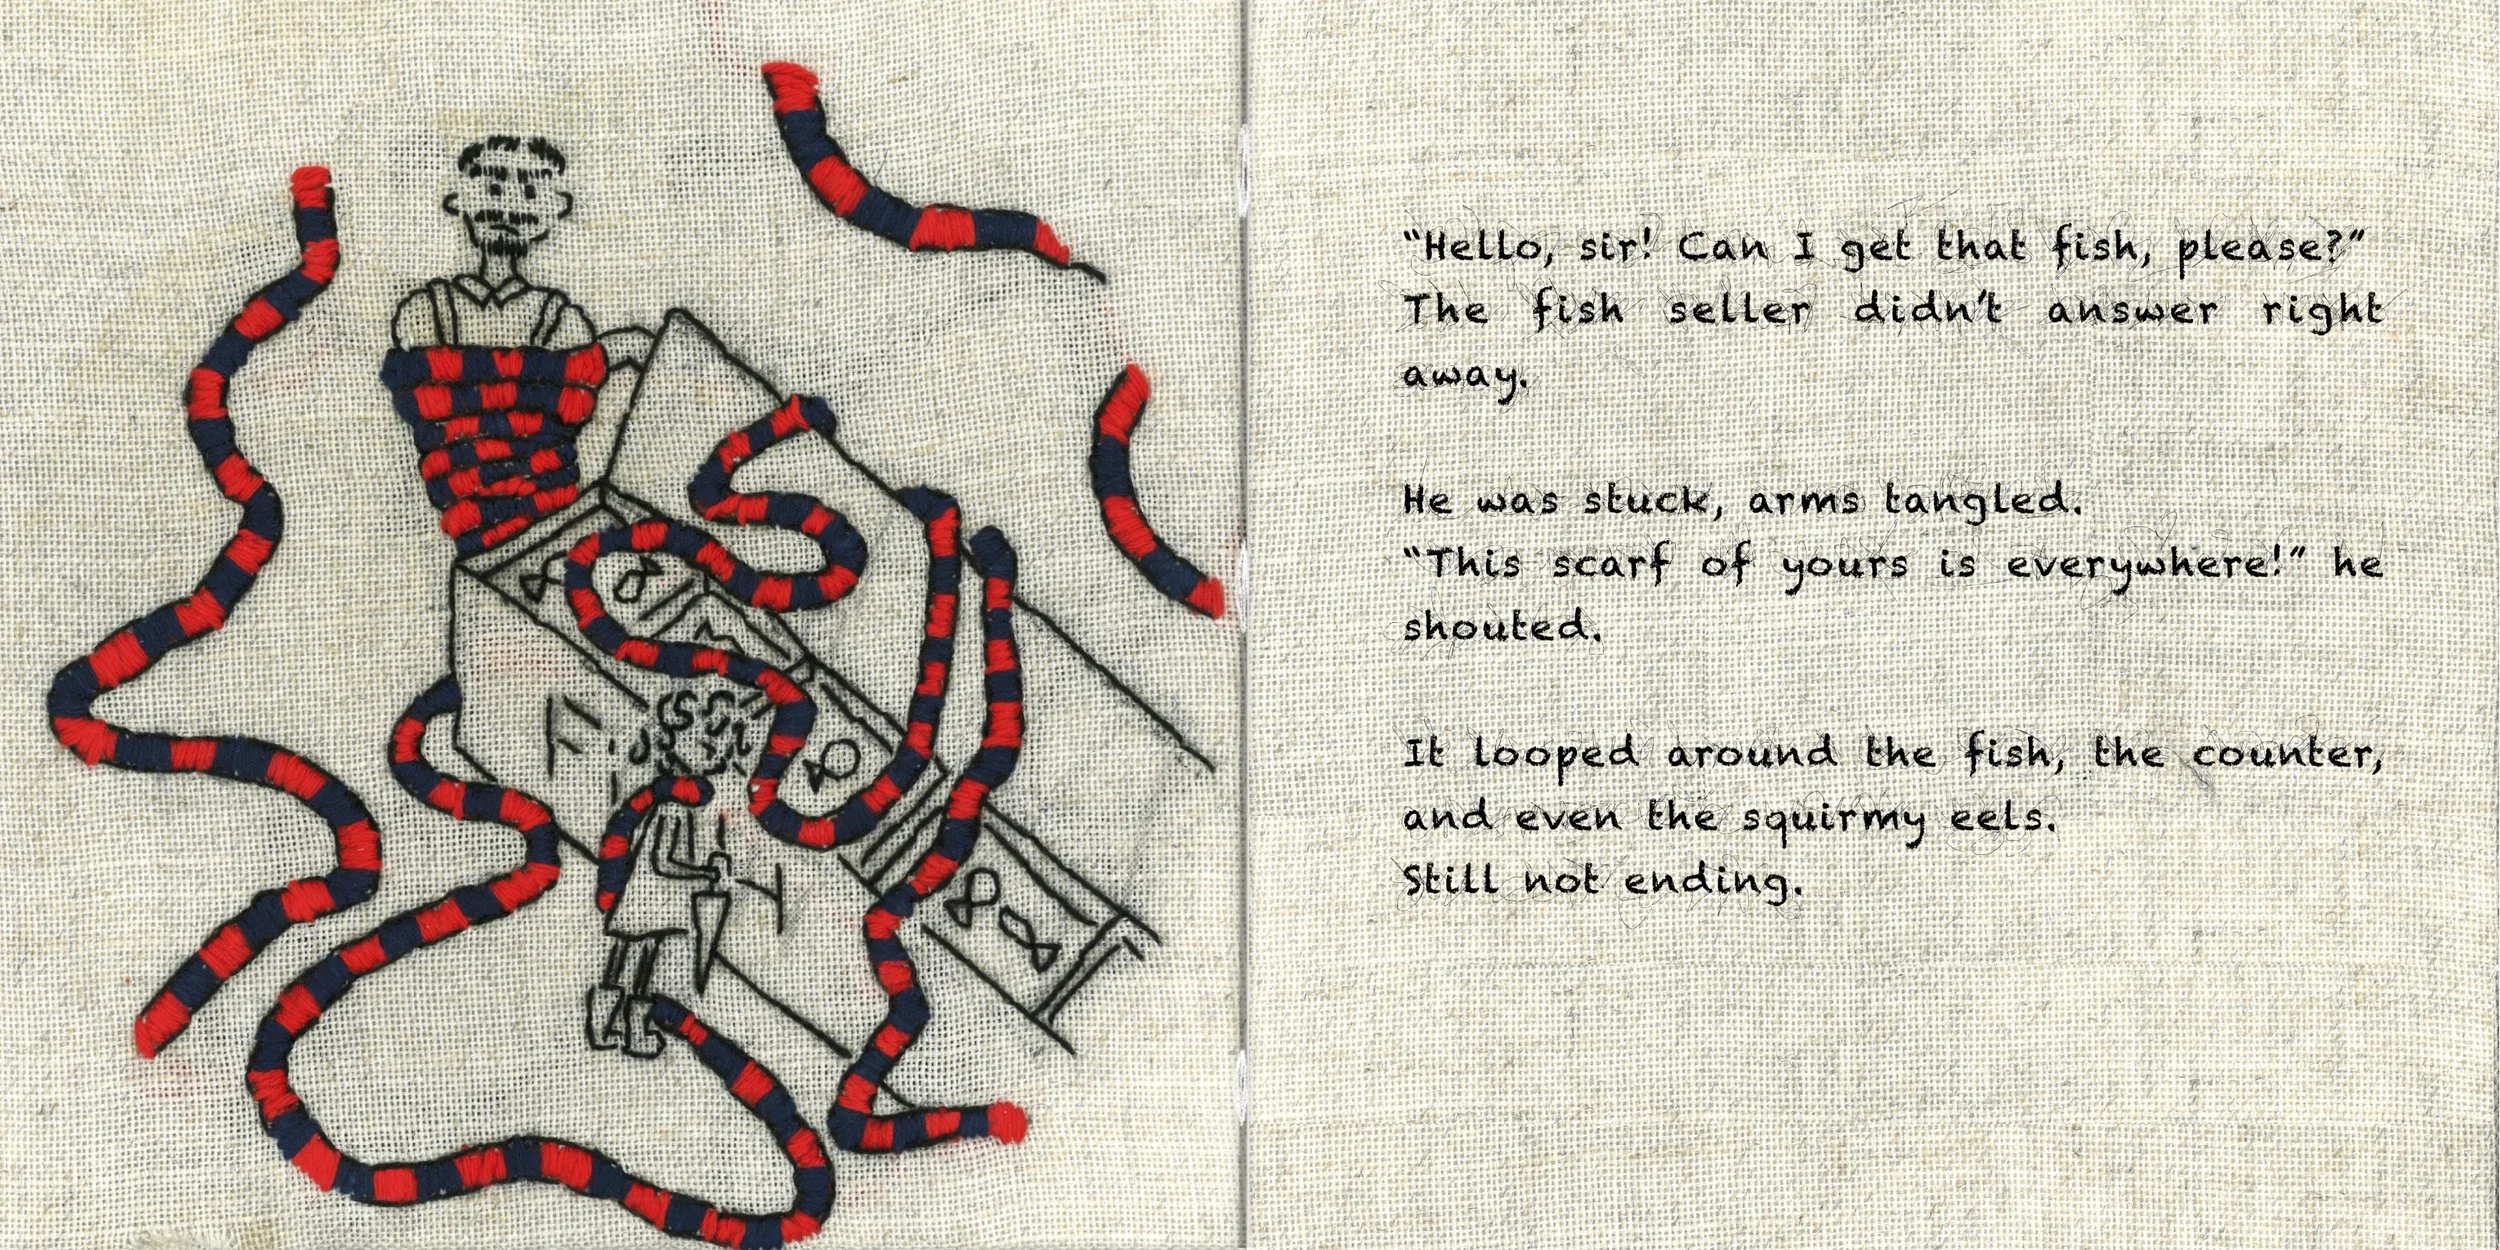 “Hello, sir! Can I get that fish, please?”
The fish seller didn’t answer right
away.
He was stuck, arms tangled.
“This scarf of yours is everywhere!” he
shouted.
It looped around the fish, the counter,
and even the squirmy eels.
Still not ending.